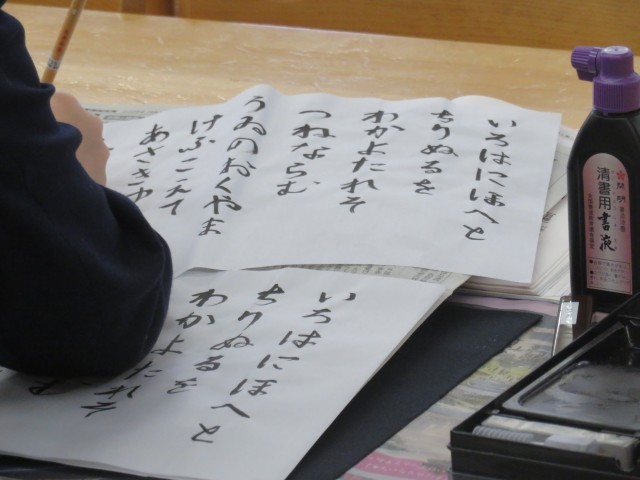 いろはにほへと
ちりぬるを
わかよたれそ
つねならむ
うゐのおくやま
けふこえて
あさきゆ
いろはにほへと
ちりぬるを
わかよたれそ
む
開明
清書用書液